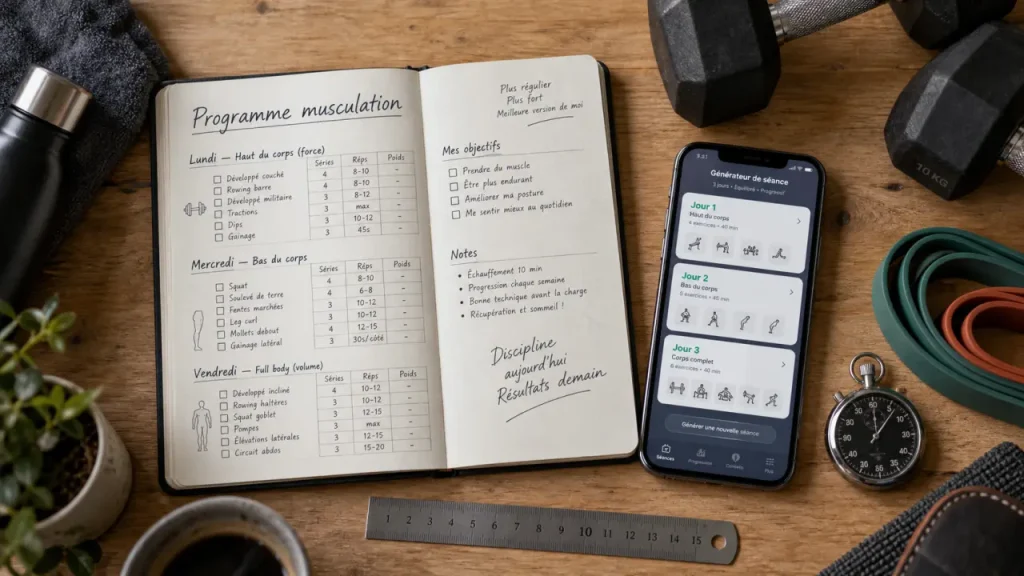 Programme musculation
Lundi — Haut du corps (force)
Séries Réps Poids
Développé couché 4 8-10 -
Rowing barre 4 8-10 -
Développé militaire 3 8-12 -
Tractions 3 max -
Dips 3 10-12 -
Gainage 3 45s -
Mercredi — Bas du corps
Séries Réps Poids
Squat 4 8-10 -
Soulevé de terre 4 6-8 -
Fentes marchées 3 10-12 -
Leg curl 3 10-12 -
Mollets debout 4 12-15 -
Gainage latéral 3 30s/côté -
Vendredi — Full body (volume)
Séries Réps Poids
Développé incliné 4 10-12 -
Rowing haltères 3 10-12 -
Squat goblet 3 12-15 -
Pompes 3 max -
Élévations latérales 3 12-15 -
Circuit abdos 3 15-20 -
Plus régulier
Plus fort
Meilleure version de moi
Mes objectifs
Prendre du muscle
Être plus endurant
Améliorer ma posture
Me sentir mieux au quotidien
Notes
• Échauffement 10 min
• Progression chaque semaine
• Bonne technique avant la charge
• Récupération et sommeil !
Discipline
aujourd'hui
Résultats demain
Générateur de séance
Jour 1
Haut du corps
Jour 2
Bas du corps
Jour 3
Corps complet
Générer une nouvelle séance
Séances
10 KG
1 2 3 4 5 6 7 8 9 10 11 12 13 14 15